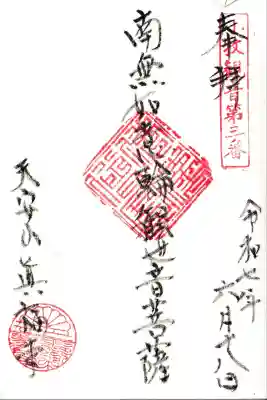 奉拝
観音第三番
令和七年
六月十八日
南無如意輪観世音菩薩
天安山真福寺